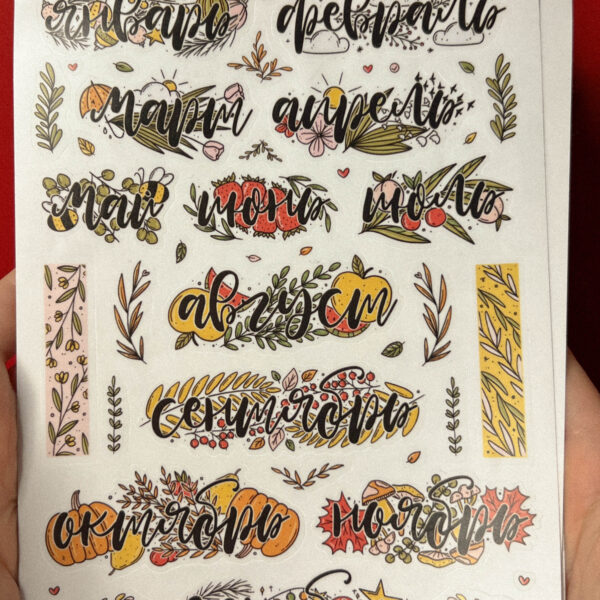 январь февраль
март апрель
май июнь июль
август
сентябрь
октябрь ноябрь